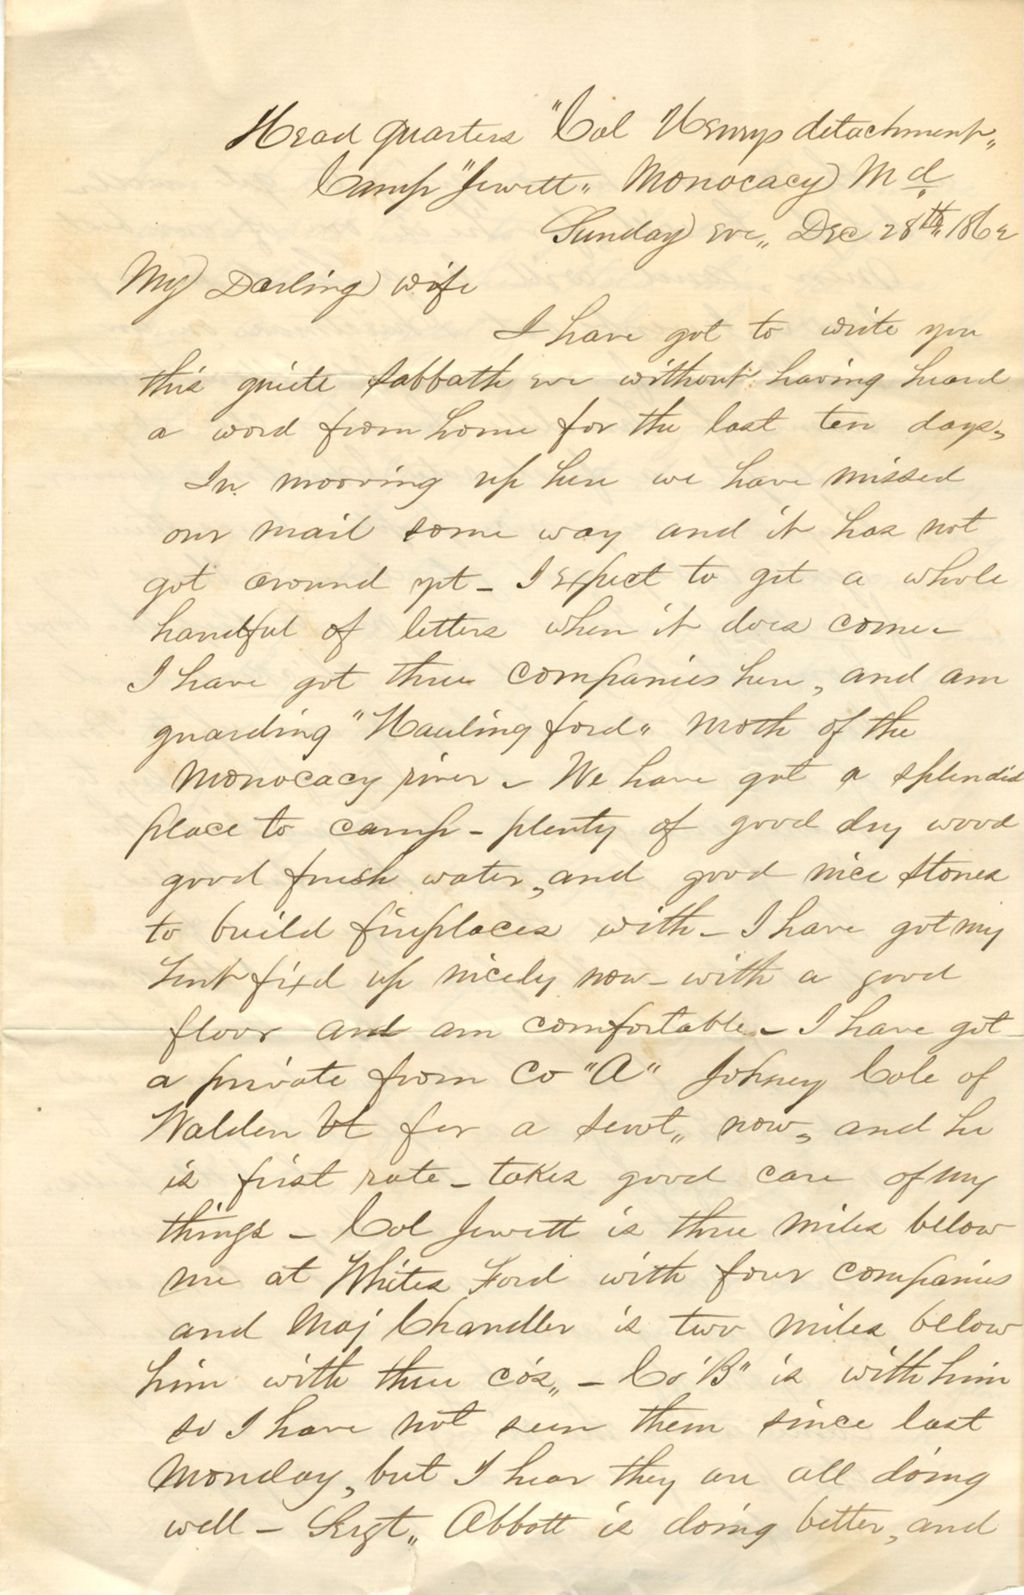 Head quarters "Col Henrys detachment"
Camp "Jewett" Monocacy Md
Sunday eve, Dec 28th, 1862
My Darling wife
I have got to write you
this quiete sabbath eve without having heard
a word from home for the last ten days,
In mooving up here we have missed
our mail some way and it has not
got around yet - I expect to get a whole
handful of letters when it does come -
I have got three companies here, and am
guarding "Hauling ford" moth of the
Monocacy river - We have got a splendid
place to camp - plenty of good dry wood
good fresh water, and good nice stones
to build fireplaces with - I have got my
tent fixd up nicely now - with a good
floor and am comfortable - I have got
a private from Co "A" Johney Cole of
Walden Vt for a servt,, now, and he
is first rate - takes good care of my
things - Col Jewett is three miles below
me at Whites Ford with four companies
and Maj Chandler is two miles below
him with three co's,, - Co "B" is with him
so I have not seen them since last
Monday, but I hear they are all doing
well - Sergt,, Abbott is doing better, and